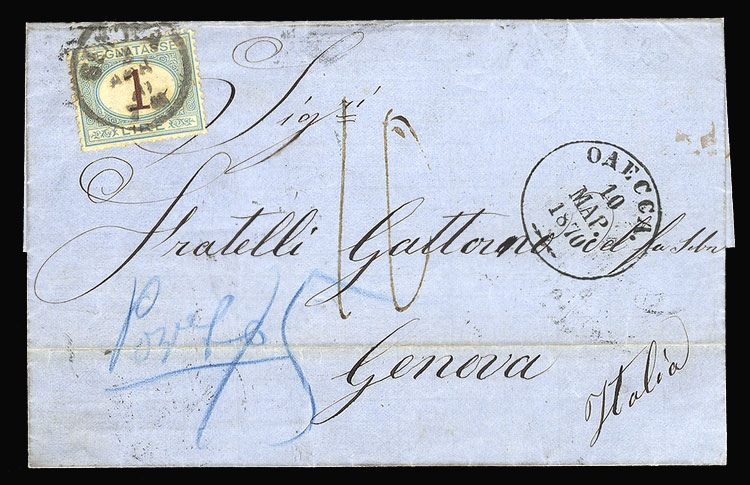 SEGNATASSE
1
LIRE
Sigri
10
ОДЕССА.
10
МАР.
1870
Fratelli Gattorno
Genova
Italia